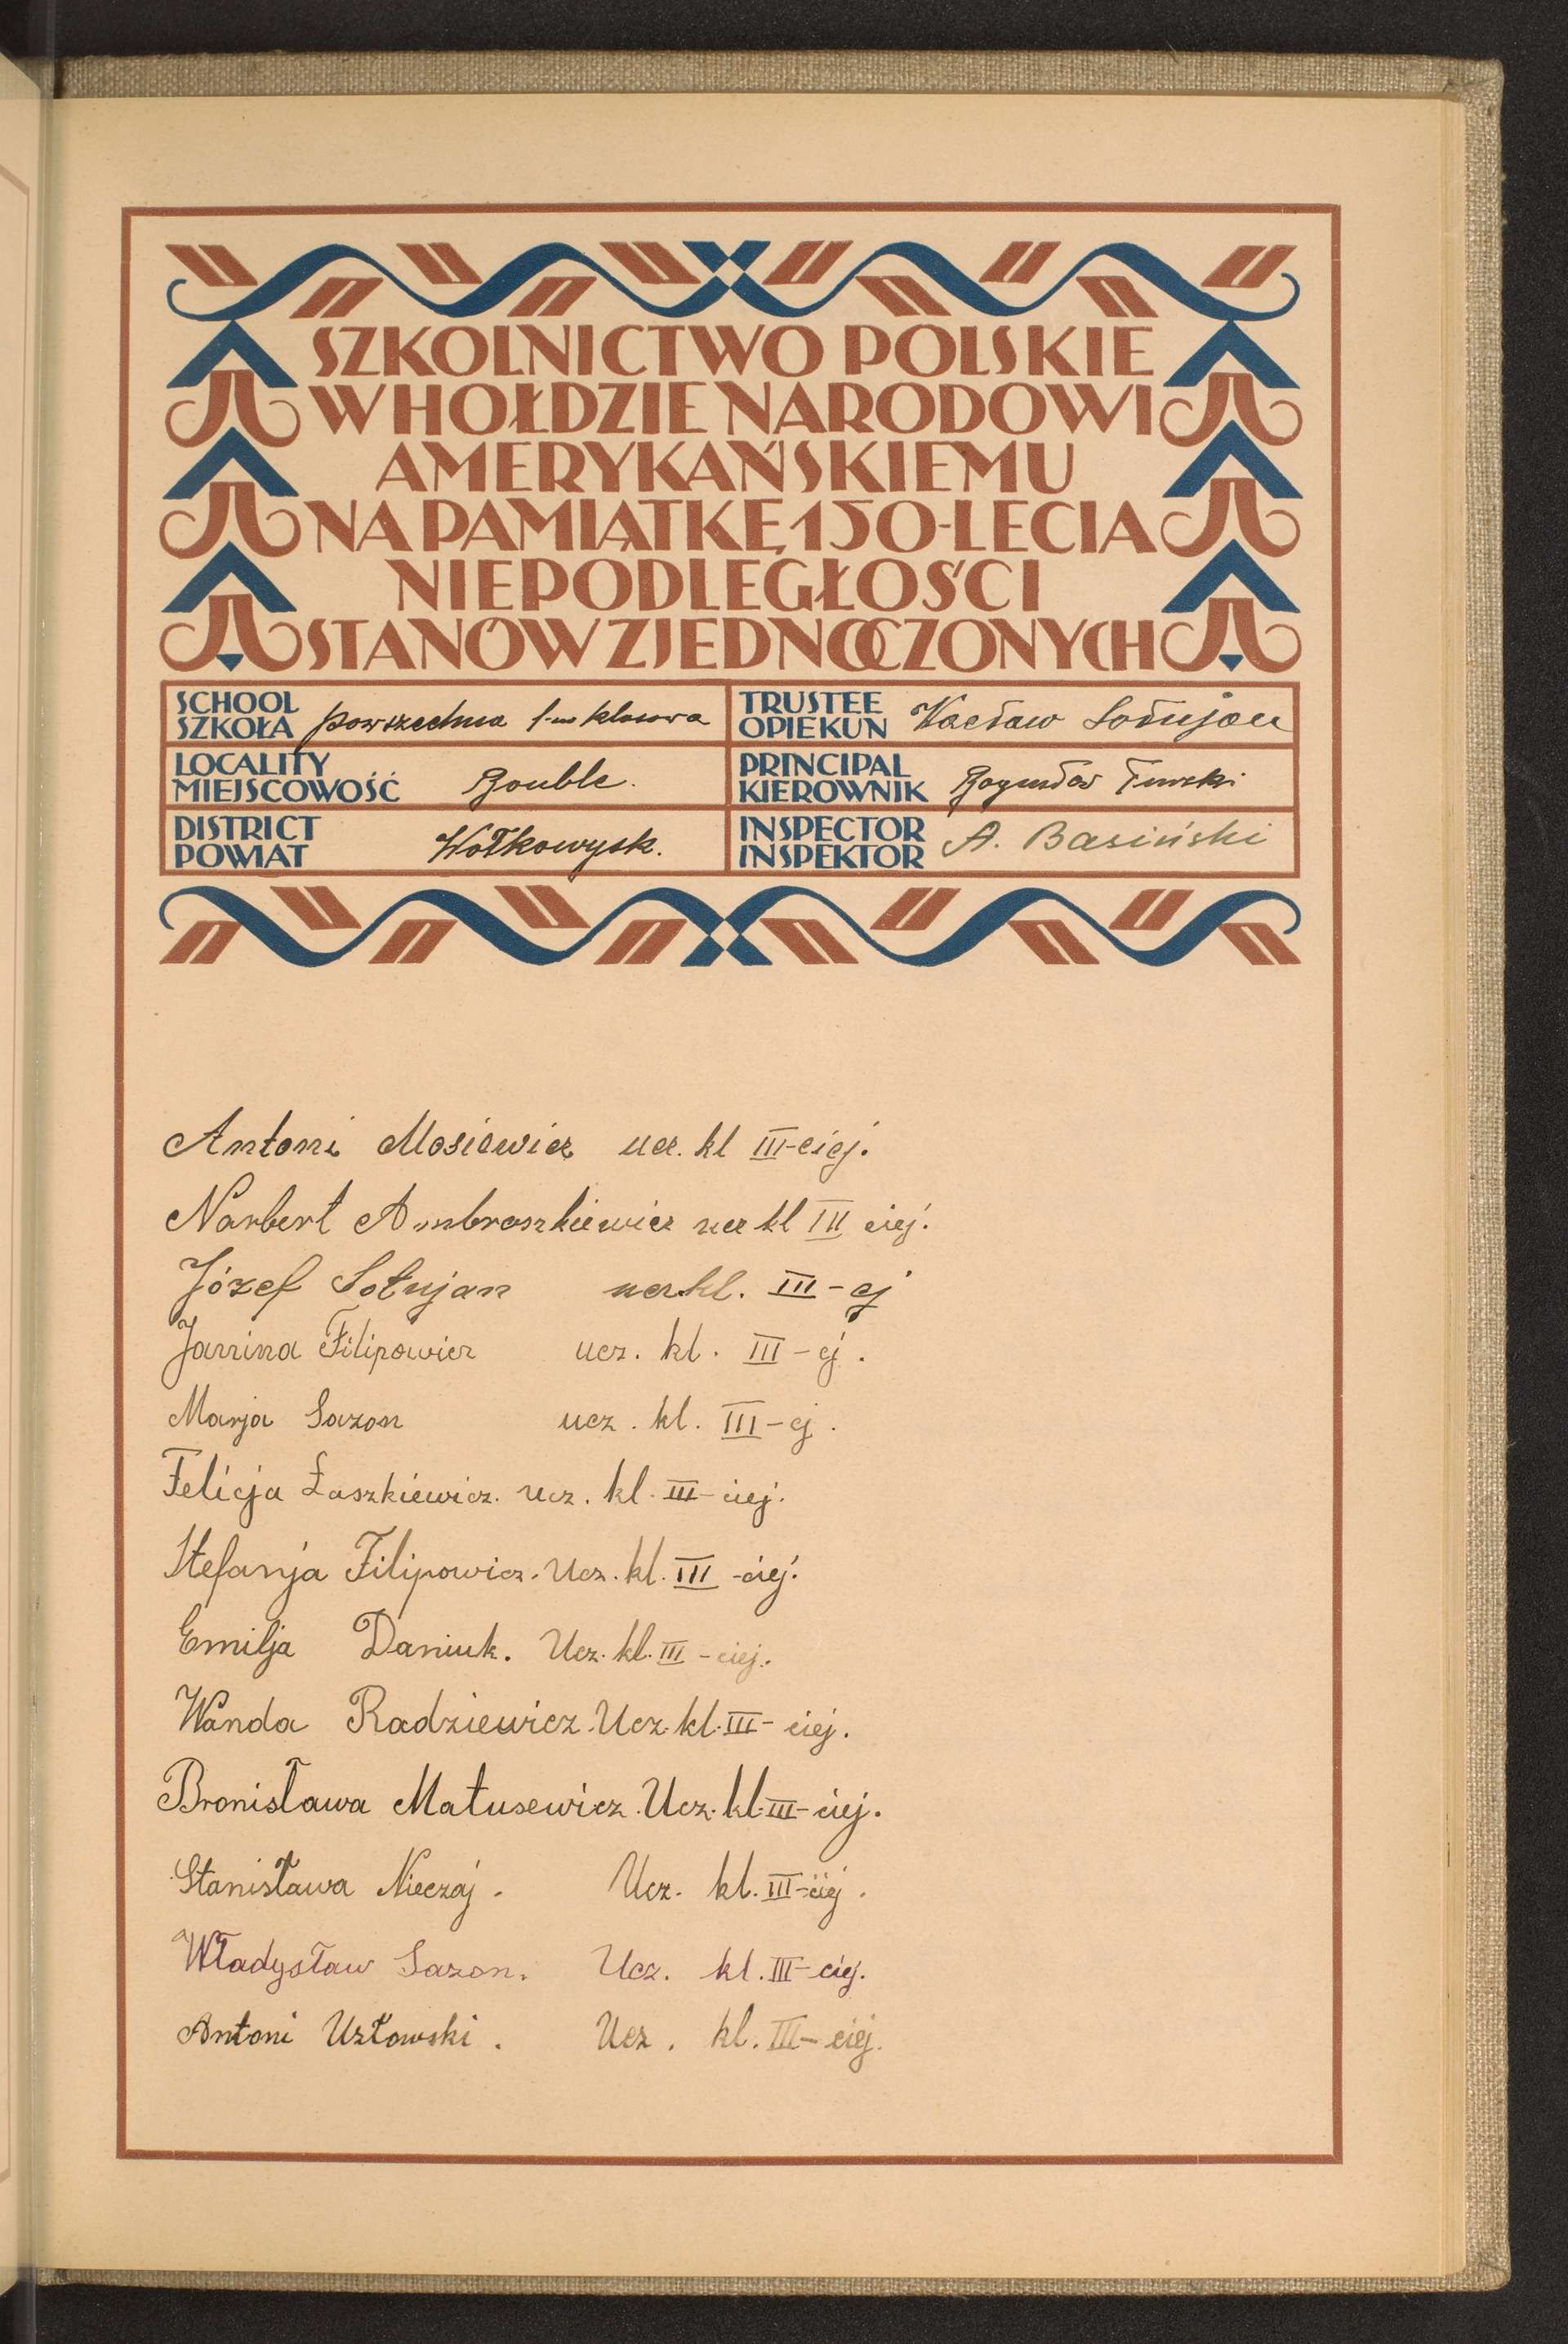 SZKOLNICTWO POLSKIE
W HOŁDZIE NARODOWI
AMERYKAŃSKIEMU
NA PAMIĄTKĘ 150-LECIA
NIEPODLEGŁOŚCI
STANÓW ZJEDNOCZONYCH
SCHOOL
SZKOŁA powszechna 1-no klasowa
TRUSTEE
OPIEKUN Wacław Sołujan
LOCALITY
MIEJSCOWOŚĆ Bouble.
PRINCIPAL
KIEROWNIK
DISTRICT
POWIAT Wołkowysk.
INSPECTOR
INSPEKTOR A. Basiński
Antoni Mosiewicz ucz. kl III-ciej.
Narbert Ambroszkiewicz ucz kl III ciej.
Józef Sołujan ucz.kl. III-ej
Janina Filipowicz ucz. kl. III-ej.
Marja Sazon ucz. kl. III-ej.
Felicja Łaszkiewicz. ucz. kl. III-ciej.
Stefanja Filipowicz. Ucz. kl. III-ciej.
Emilja Daniuk. Ucz. kl. III-ciej.
Wanda Radziewicz. Ucz. kl. III-ciej.
Bronisława Matusewicz. Ucz. kl. III-ciej.
Stanisława Nieczaj. Ucz. kl. III-ciej.
Władysław Sazon. Ucz. kl. III-ciej.
Antoni Uzłowski. Ucz. kl. III-ciej.